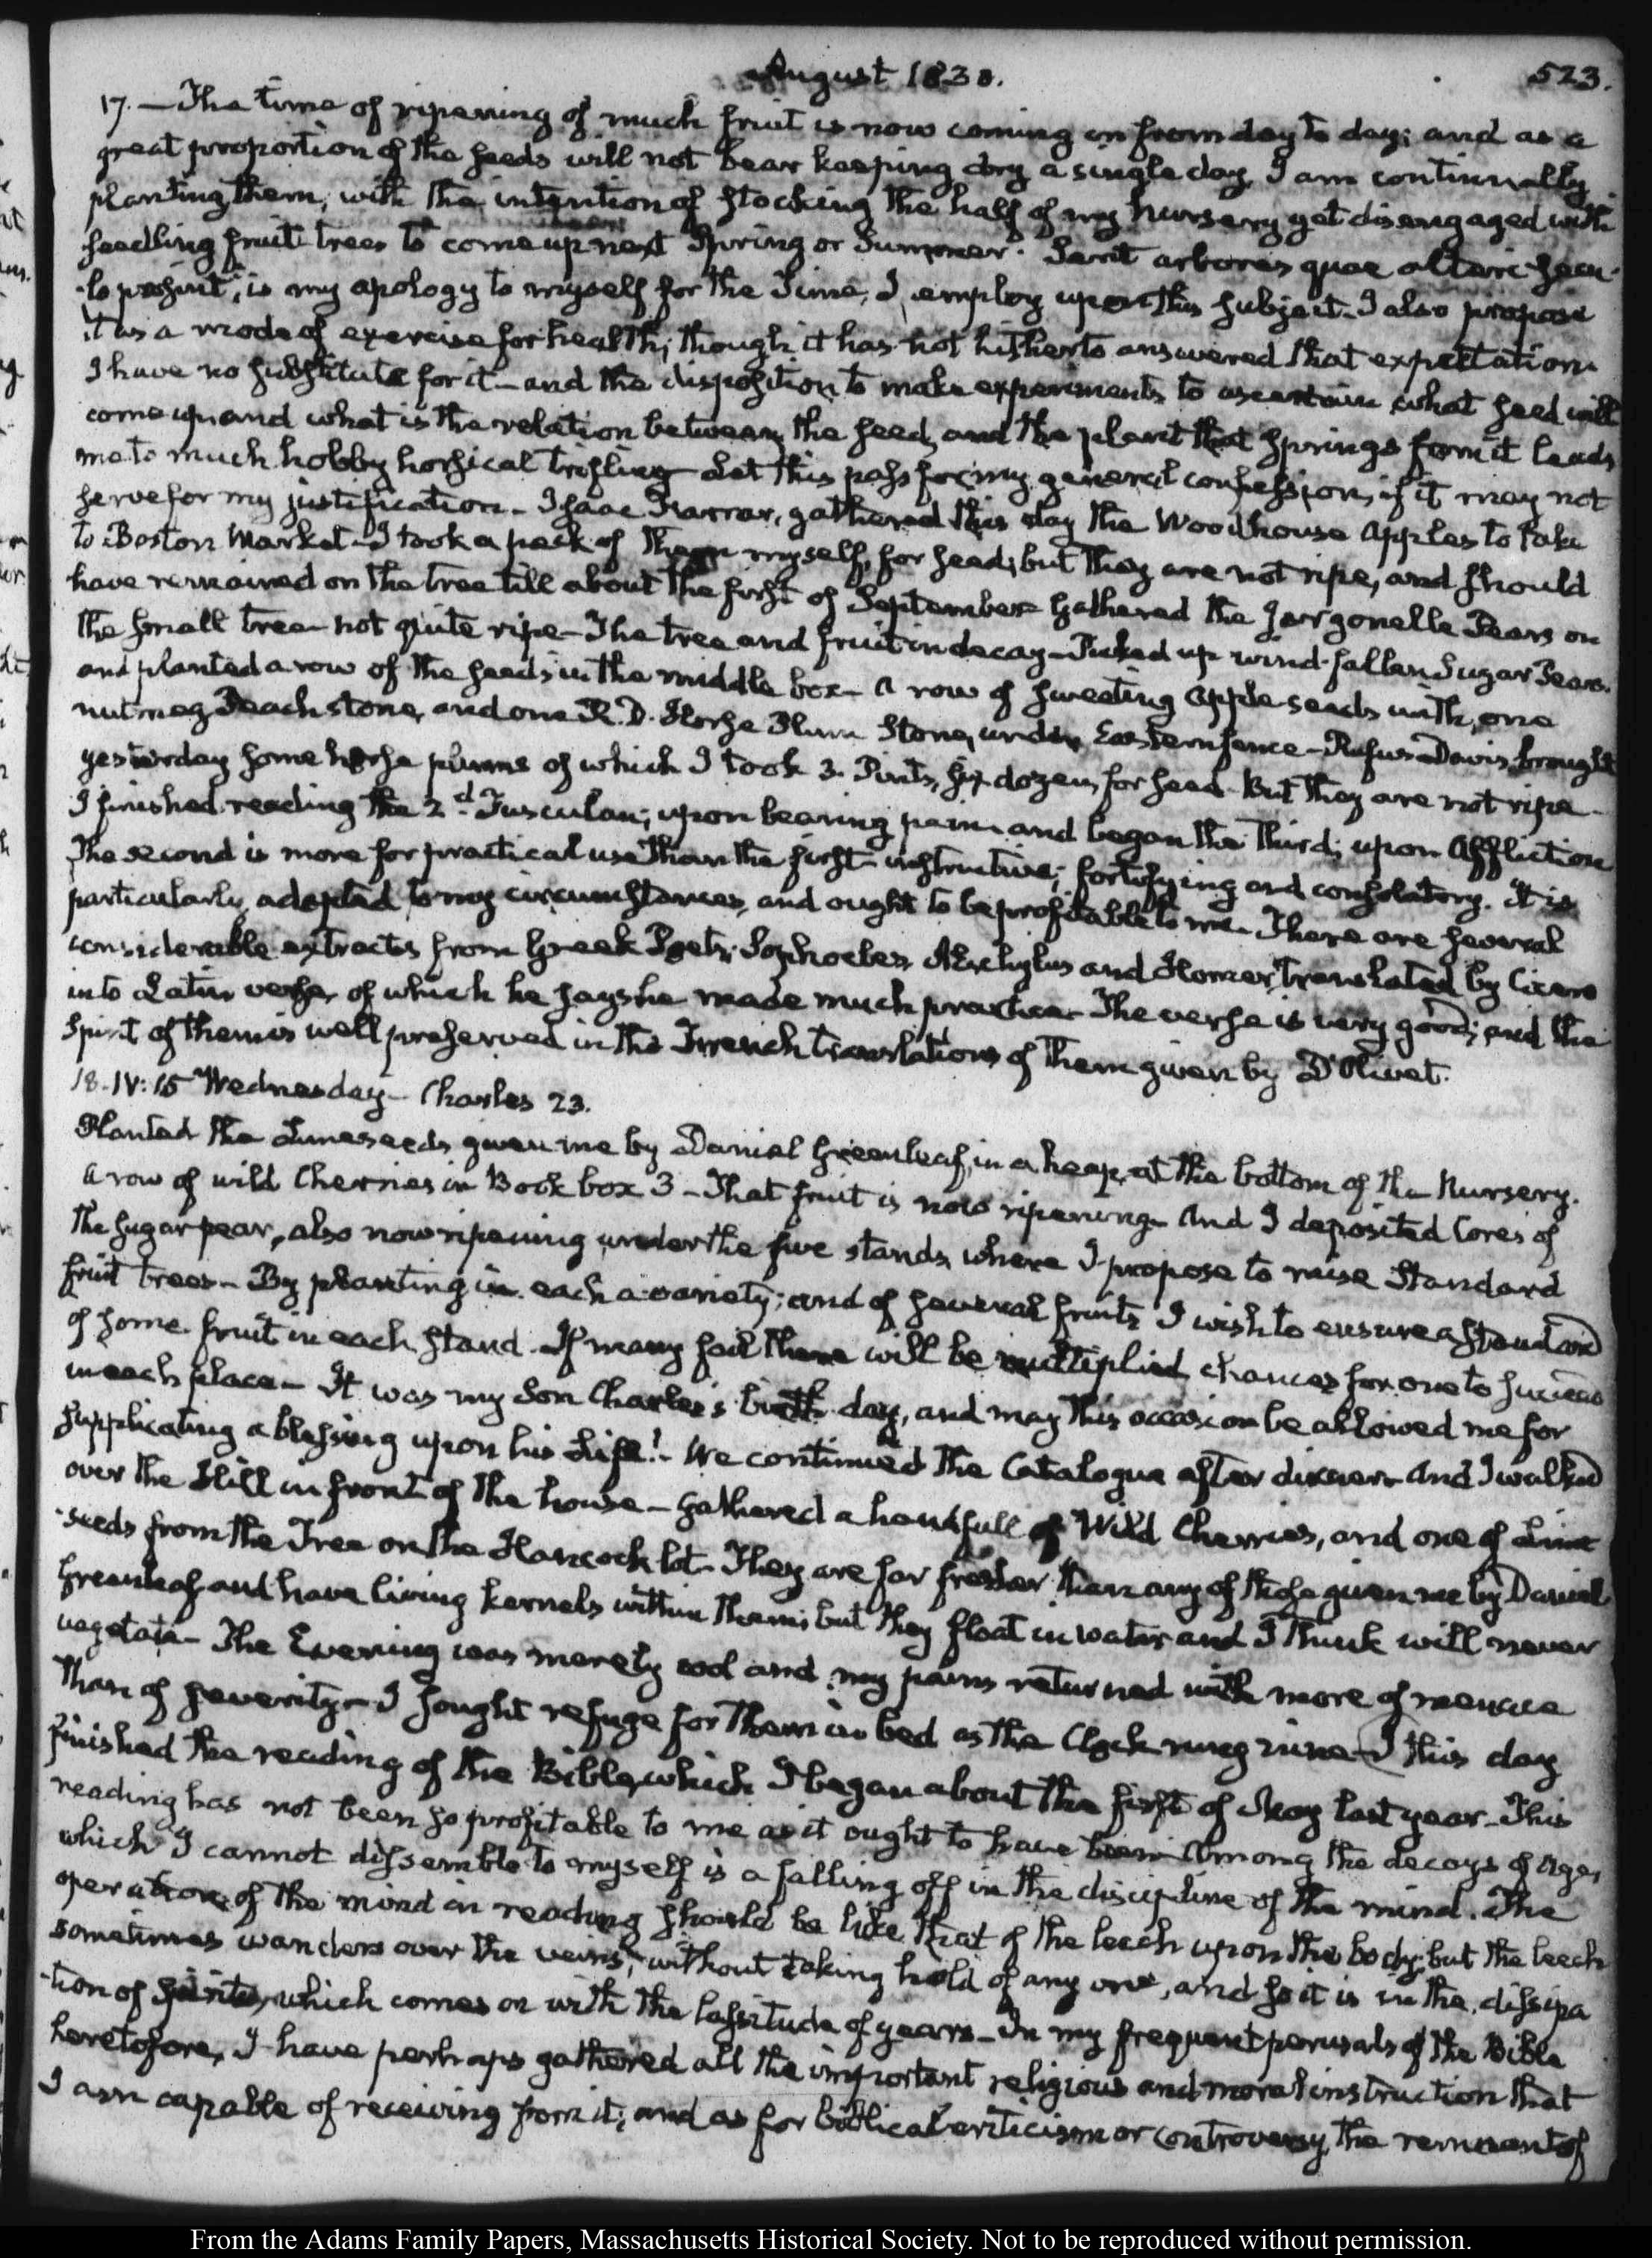 August 1830.
523.
17. — The time of ripening of much fruit is now coming on from day to day; and as a
great proportion of the seeds will not bear keeping dry a single day, I am continually
planting them, with the intention of stocking the half of my Nursery yet disengaged with
seedling fruit trees to come up next Spring or Summer. Serit arbores quae alteri secu-
-lo prosint, is my apology to myself for the Time, I employ upon this subject. I also propose
it as a mode of exercise for health; though it has not hitherto answered that expectation.
I have no substitute for it — and the disposition to make experiments to ascertain what seed will
come up and what is the relation between the seed, and the plant that springs from it leads
me to much hobby horsical trifling. Let this pass for my general confession, if it may not
serve for my justification. Isaac Farrar, gathered this day the Woodhouse apples to take
to Boston Market. I took a peck of them myself, for seed; but they are not ripe, and should
have remained on the tree till about the first of September. Gathered the Jargonelle Pears on
the small tree — not quite ripe — The tree and fruit in decay — Picked up wind-fallen Sugar Pears.
and planted a row of the seeds in the middle box — A row of sweeting apple-seeds with, one
nutmeg Peach stone, and one R. D. Horse Plum Stone, under Eastern fence — Rufus Davis, brought
yesterday some horse plums of which I took 3. Pints, six dozen, for seed. But they are not ripe —
I finished reading the 2d. Tusculan; upon bearing pain — and began the Third; upon Affliction
The second is more for practical use than the first — instructive; fortifying and consolatory. It is
particularly adapted to my circumstances, and ought to be profitable to me. There are several
considerable extracts from Greek Poets; Sophocles, Æschylus and Homer, translated by Cicero
into Latin verse, of which he says he made much practice. The verse is very good; and the
Spirit of them is well preserved in the French translations of them given by D'Olivet.
18. IV: 15 Wednesday — Charles 23.
Planted the Lime seeds, given me by Daniel Greenleaf, in a heap, at the bottom of the Nursery.
A row of wild Cherries in Book box 3 — That fruit is now ripening — And I deposited Cores of
the Sugar pear, also now ripening under the five stands, where I propose to raise Standard
fruit trees — By planting in each a variety; and of several fruits I wish to ensure a standard
of some fruit in each stand. If many fail there will be multiplied chances for one to succeed
in each place — It was my Son Charles's birth day, and may this occasion be allowed me for
supplicating a blessing upon his Life! — We continued the Catalogue after dinner. And I walked
over the Hill in front of the house — gathered a handfull of Wild Cherries, and one of Lime
-seeds from the Tree on the Hancock lot. They are far fresher than any of those given me by Daniel
Greenleaf and have living kernels within them; but they float in water and I think will never
vegetate — The Evening was merely cool and my pains returned with more of menace
than of severity — I sought refuge for them in bed as the Clock rung nine — I this day
finished the reading of the Bible, which I began about the first of May last year — This
reading has not been so profitable to me as it ought to have been. Among the decays of Age,
which I cannot dissemble to myself is a falling off in the discipline of the mind. The
operations of the mind in reading should be like that of the leech upon the body; but the leech
sometimes wanders over the veins, without taking hold of any one, and so it is in the dissipa
-tion of spirits, which comes on with the lassitude of years — In my frequent perusals of the Bible
heretofore, I have perhaps gathered all the important religious and moral instruction that
I am capable of receiving from it; and as for biblical criticism or controversy, the remnant of
From the Adams Family Papers, Massachusetts Historical Society. Not to be reproduced without permission.